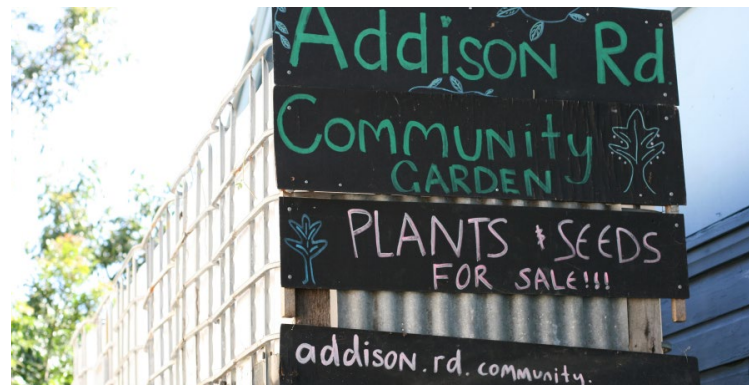 Addison Rd
Community
GARDEN
PLANTS & SEEDS
FOR SALE!!!
addison.rd.community.